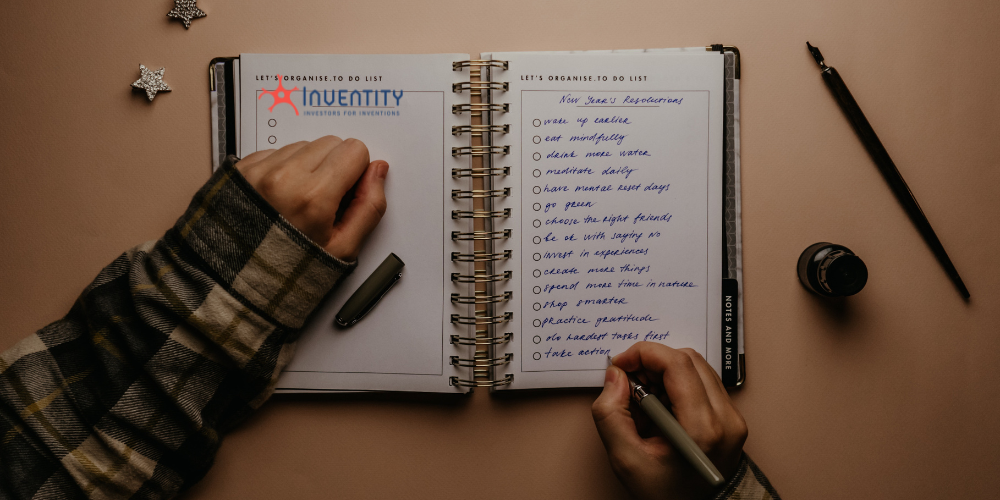 LET'S ORGANISE.TO DO LIST
INVENTITY
INVESTORS FOR INVENTIONS
LET'S ORGANISE.TO DO LIST
New Year's Resolutions
wake up earlier
eat mindfully
drink more water
meditate daily
have mental reset days
go green
choose the right friends
be ok with saying no
invest in experiences
create more things
spend more time in nature
shop smarter
practice gratitude
do hardest tasks first
take action
NOTES AND MORE